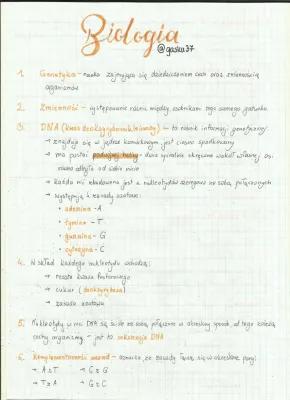 Biologia
@gasku37
1. Genetyka - nauka zajmująca się dziedziczeniem cech oraz zmiennością
organizmów
2. Zmienność - występowanie różnic między osobnikami tego samego gatunku
3. DNA (kwas deoksyrybonukleinowy) - to nośnik informacji genetycznej:
→ znajduje się w jądrze komórkowym, jest ciasno upakowany
→ ma postać podwójnej helisy - dwie spiralnie skręcone wokół własnej osi
nici
→ każda nić zbudowana jest z nukleotydów szeregowo ze sobą połączonych
→ występują 4 zasady azotowe:
• adenina - A
• tymina - T
• guanina - G
• cytozyna - C
4. W skład każdego nukleotydu wchodzą:
→ reszta kwasu fosforowego
→ cukier (deoksyryboza)
→ zasada azotowa
5. Nukleotydy w nici DNA są ze sobą połączone w określony sposób, od tego zależą
cechy organizmu - jest to sekwencja DNA
6. Komplementarność zasad - oznacza, że zasady łączą się w określone pary:
→ A≡T → G≡G
→ T≡A → G≡C